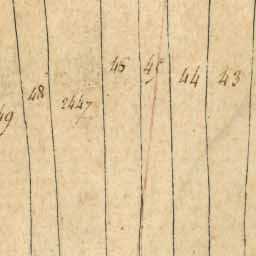 49
48
2447
46
45
44
43